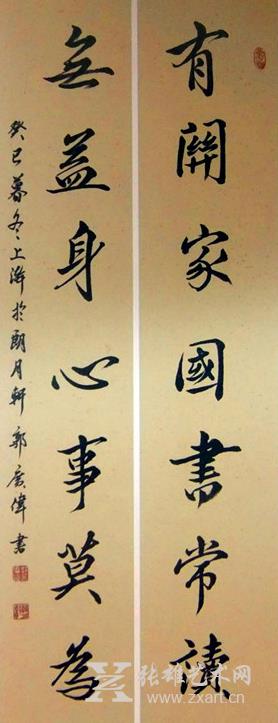 有關家國書常讀
無益身心事莫為
癸巳暮冬上澣於朗月軒郭廣偉書
张雄艺术网
www.zxart.cn